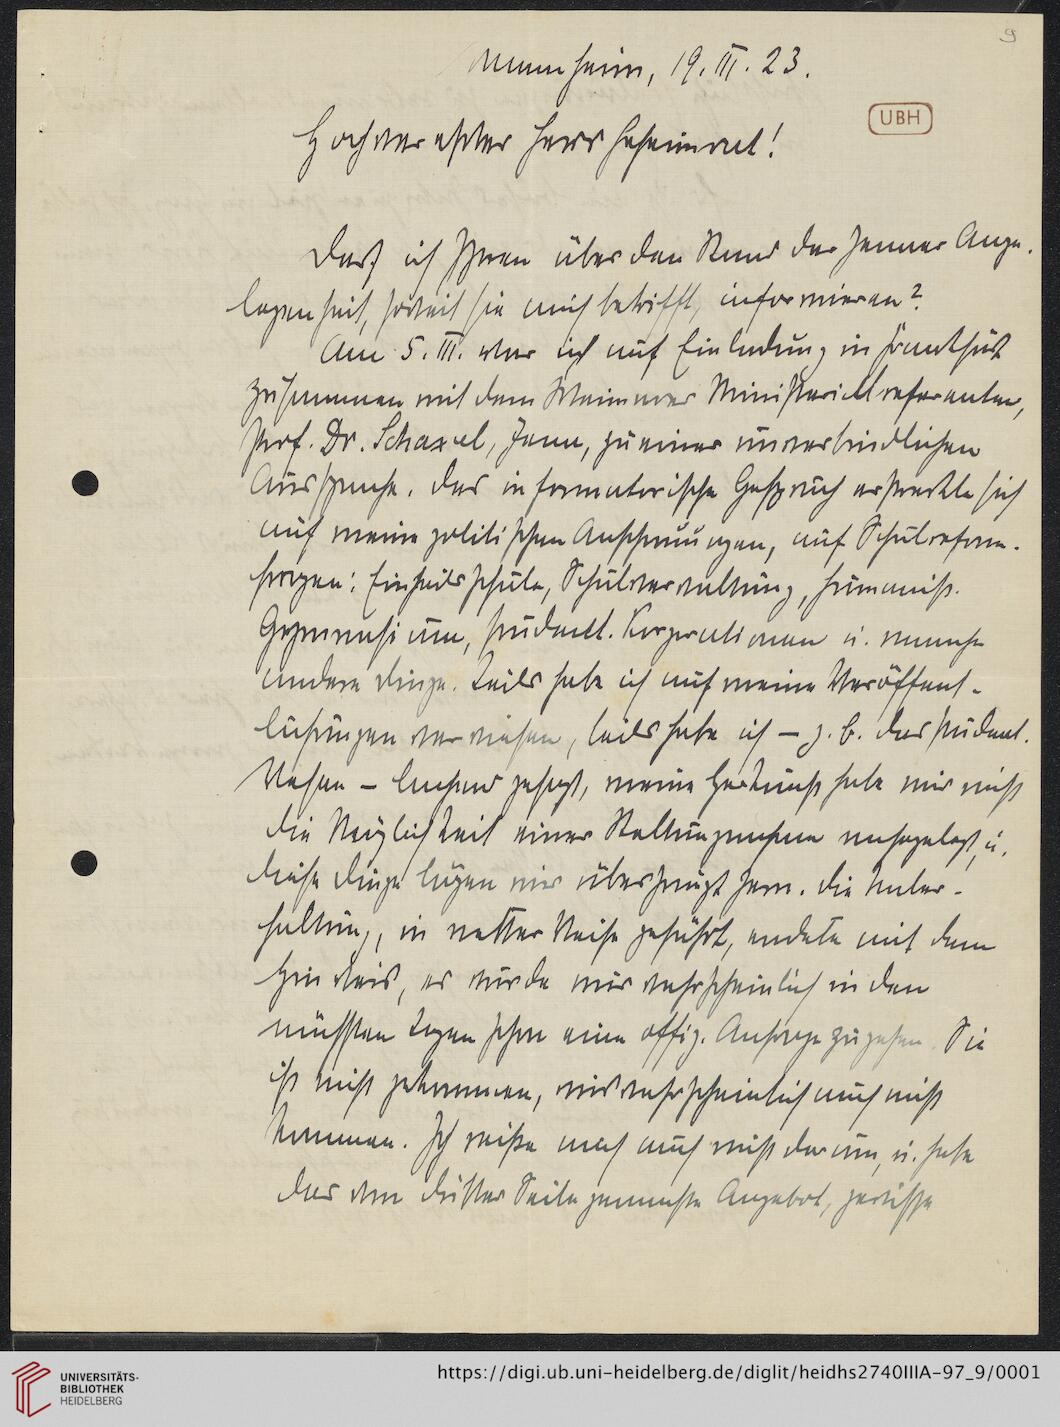 9
Mannheim, 19. III. 23.
UBH
Hochverehrter Herr Geheimrat!
Darf ich Ihnen über den Stand der Jenaer Ange-
legenheit, soweit sie mich betrifft, informieren?
Am 5. III. war ich auf Einladung in Frankfurt
zusammen mit dem Weimarer Ministerialreferenten,
Prof. Dr. Schaxel, Jena, zu einer unverbindlichen
Aussprache. Das informatorische Gespräch erstreckte sich
auf meine politischen Anschauungen, auf Schulreform-
fragen: Einheitsschule, Schulverwaltung, humanist.
Gymnasium, student. Korporationen u. manche
andere Dinge. Teils habe ich auf meine Veröffent-
lichungen verwiesen, teils habe ich – z. B. das student.
Wesen – lachend gesagt, meine Herkunft habe mir nicht
die Möglichkeit einer Stellungnahme nahegelegt, u.
diese Dinge lägen mir überhaupt fern. Die Unter-
haltung, in netter Weise geführt, endete mit dem
Hinweis, es würde mir wahrscheinlich in den
nächsten Tagen schon eine offiz. Anfrage zugehen. Sie
ist nicht gekommen, wird wahrscheinlich auch nicht
kommen. Ich reiße mich auch nicht darum, u. habe
das von dritter Seite gemachte Angebot, gewisse
UNIVERSITÄTS-
BIBLIOTHEK
HEIDELBERG
https://digi.ub.uni-heidelberg.de/diglit/heidhs2740IIIA-97_9/0001